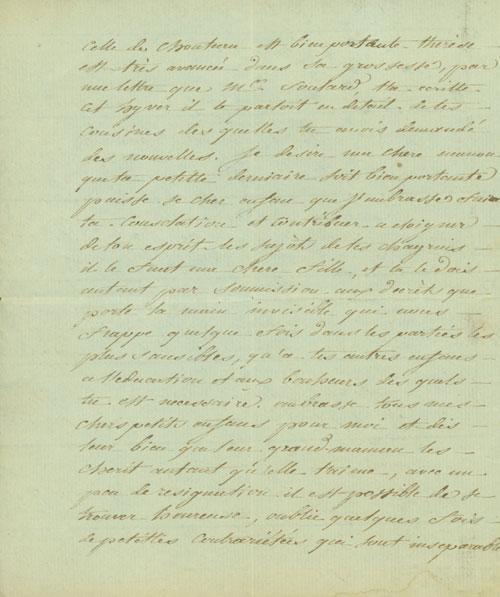 celle de Chouteau est bien portante therese
est très avancée dans sa grossesse, par
une lettre que Mr. Soulard, t'a écritte
cet hyver il te parloit en detail de tes
cousines des quelles tu avois demandé
des nouvelles. Je desire ma chere maman
que ta petitte derniaire soit bien portante
puisse se cher enfan que J'embrasse faire
ta Consolation et Contribuer a eloigner
de ton esprit les sujêt de tes chagrins
il le faut ma chere fille, et tu le dois
autant par soumission aux decrêts que
porte la main invisible qui nous
frappe quelque fois dans les parties les
plus sansibles, qu'a tes autres enfans
a l'education et aux bonheurs des quels
tu est necessaire. embrasse tous mes
chers petits enfans pour moi et dis
leur bien que leur grand maman les
cherit autant qu'elle t'aime, avec un
peu de resignation il est possible de se
trouver heureuse, oublie quelques fois
de petittes Contrariétées qui sont inseparable